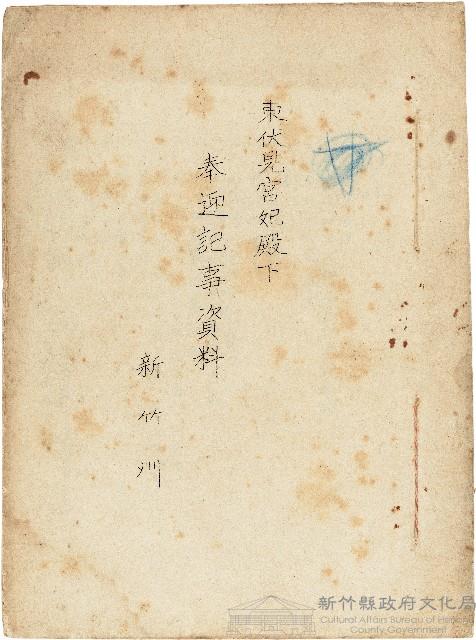 東伏見宮妃殿下
奉迎記事資料
新竹州
新竹縣政府文化局
Cultural Affairs Bureau of Hsinchu
County Government